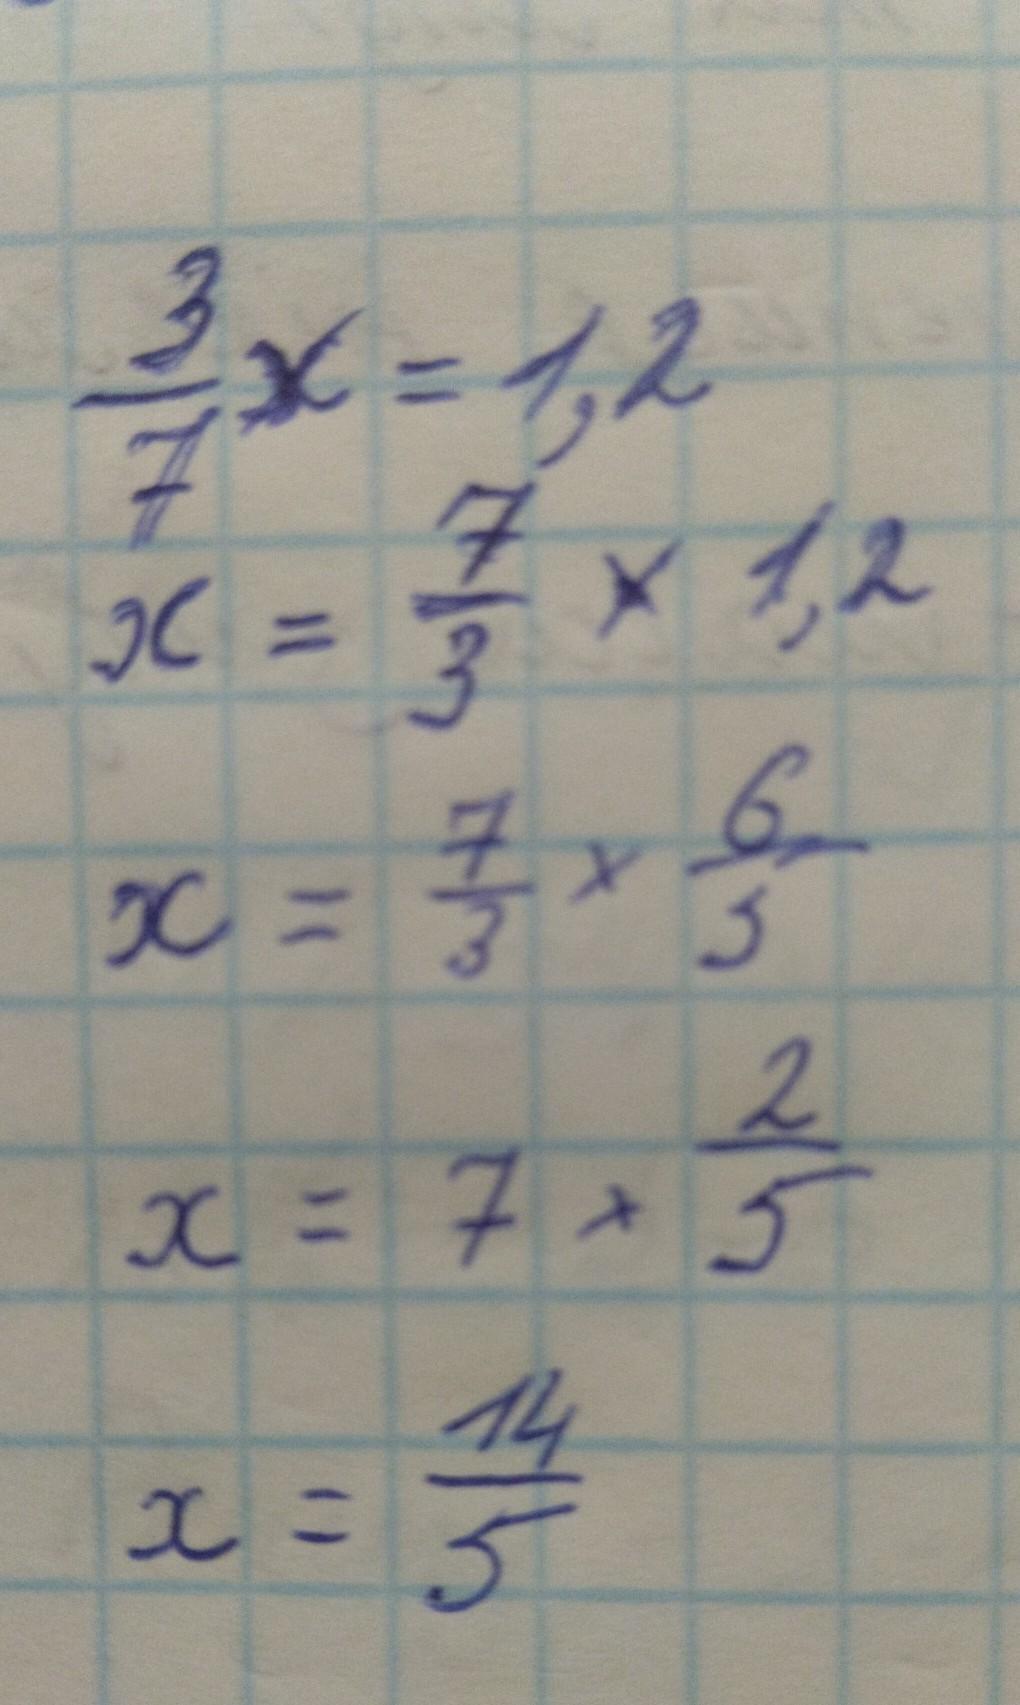 3/7 x = 1,2
x = 7/3 × 1,2
x = 7/3 × 6/5
x = 7 × 2/5
x = 14/5